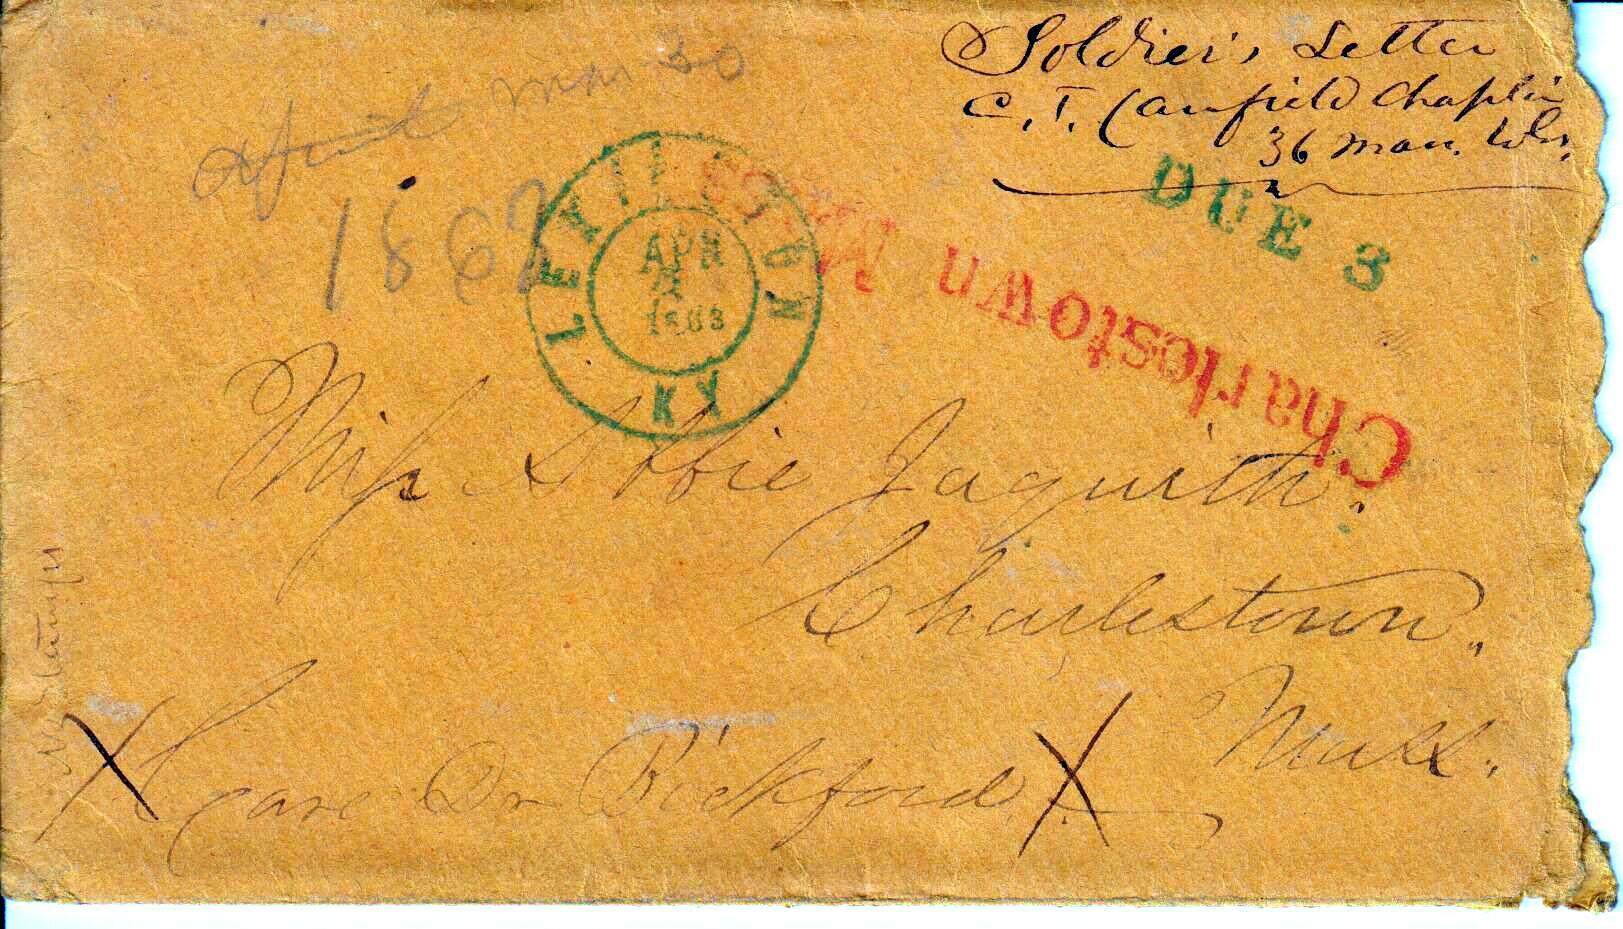 Soldier's Letter
C. T. Canfield Chaplin
36 Mass. Vols.
DUE 3
Mar 30
1863
LEXINGTON
APR
4
1863
KY
Charlestown Mass
Miss Abbie Jaquith.
Charlestown,
Mass.
Care Dr Bickford
No Stamps